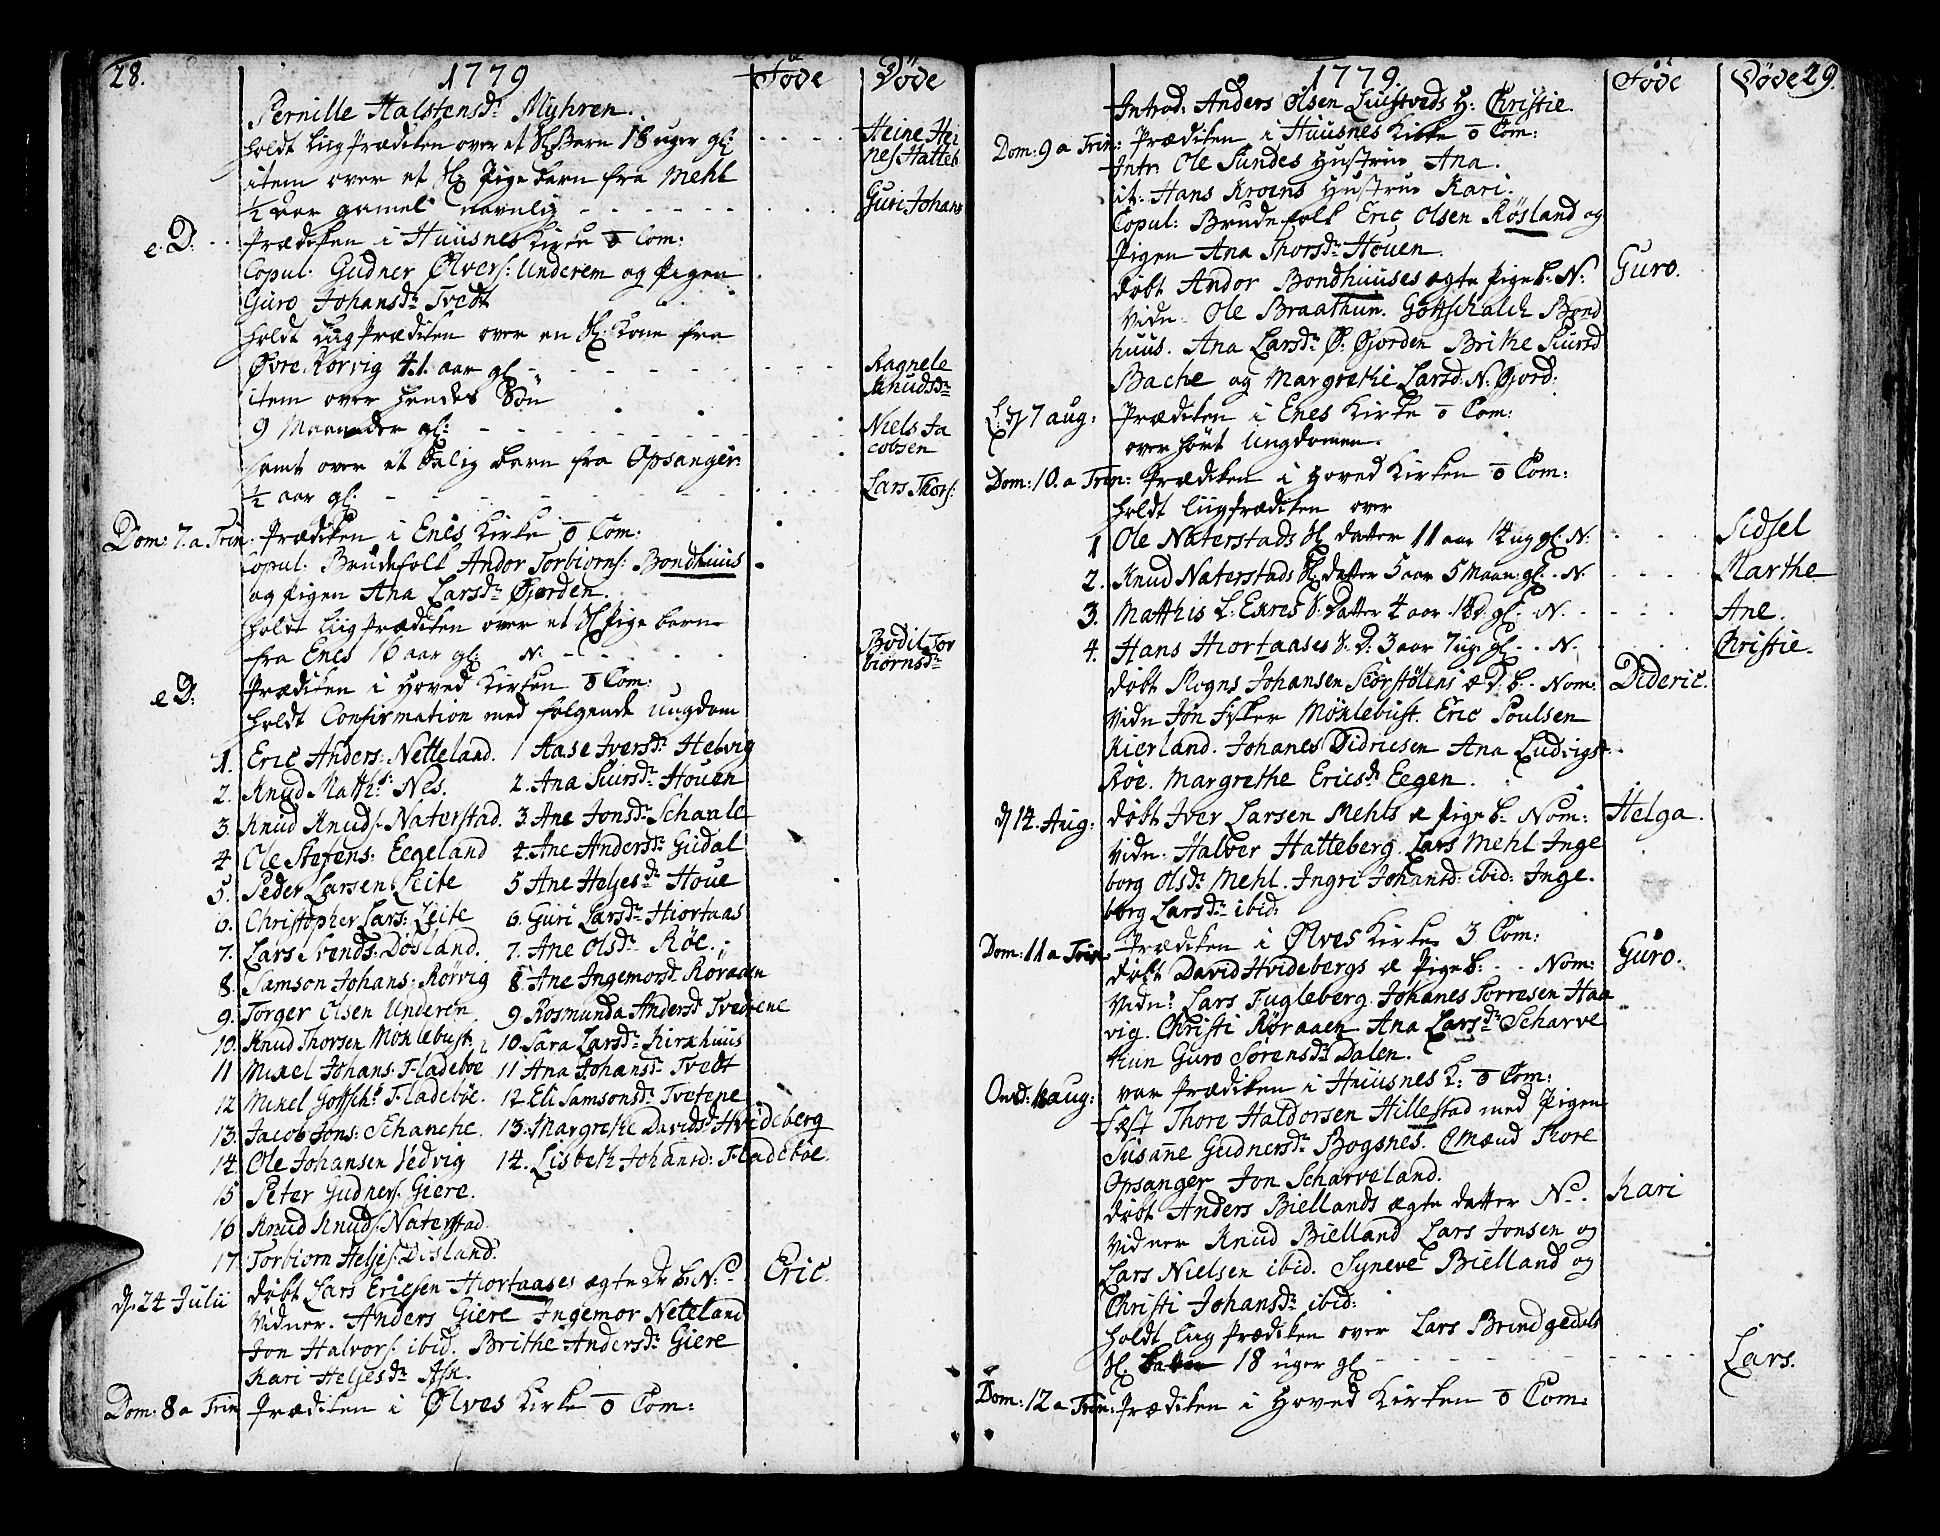 28. 1779 Føde Døde
Pernille Halstensdr Myhren.
holdt Liigprædiken over et Sl Barn 18 uger gl: - - - - Heine Hei
nes Hatteb
item over et Sl Pige barn fra Mehl
½ aar gamel navnlig - - - - - - Guri Johans
e. D: Prædiken i Huusnes Kirke o Com:
Copul. Gudner Ølvers: Underem og Pigen
Guro Johansdr Tvedt
holdt Liigprædiken over en Sl. Kone fra
Øvre Rørvig 41. aar gl - - - - - - Ragnele
Knudsdr
item over hendes Søn
9 Maaneder gl: - - - - - - Niels Ja
cobsen
samt over et Salig barn fra Opsanger:
½ aar gl. - - - - - - Lars Thors:
Dom: 7. a Trin. Prædiken i Enes Kirke o Com:
Copul: Brudefolk Andor Torbiorns: Bondhuus
og Pigen Ana Larsdr Øjorden.
holdt Liigprædiken over et Sl Pige barn
fra Enes 16 aar gl N. - - - - Bodil Tor
biørnsdr
e D: Prædiken i Hoved Kirken o Com:
holdt Confirmation med følgende ungdom
1. Eric Anders: Netteland. 1 Aase Iversdr Helvig
2. Knud Matths: Nes. 2. Ana Siursdr Houen
3. Knud Knuds. Naterstad. 3. Ane Jonsdr Schaale
4 Ole Stefens: Eegeland 4. Ane Andersdr Guddal
5. Peder Larsen Leite 5 Ane Heljesdr Houe
6. Christopher Lars: Leite 6. Guri Larsdr Hiortaas
7. Lars Svends: Dosland. 7. Ane Olsdr Røe.
8. Samson Johans: Rørvig 8. Ane Ingemorsd Røraaen
9. Torger Olsen Underen 9. Rosmunda Andersd Tvedtene
10. Knud Thorsen Moklebust. 10. Sara Larsdr Kirkhuus
11 Mikel Johans: Fladeboe 11 Ana Johansdr Tvedt
12 Mikel Gottsch: Fladebøe. 12. Eli Samsonsdr Tvetene
13. Jacob Jons: Schanche. 13. Margrethe Davidsd Hvideberg
14. Ole Johansen Vedvig 14. Lisbeth Johansd: Fladebøe.
15 Peter Gudners. Giere.
16 Knud Knuds. Naterstad
17. Torbiorn Heljes. Disland.
d. 24 Julii døbt Lars Ericsen Hiortaases ægte Dr b. N. Eric.
Vidner. Anders Giere Ingemor Neteland
Jon Halvors. ibid. Brithe Andersdr Giere
Kari Heljesdr Ask.
Dom: 8 a Trin Prædiken i Ølves Kirke o Com:
1779. Føde Døde 29.
Introd. Anders Olsen Luustveds H: Christie.
Dom: 9 a Trin: Prædiken i Huusnes Kirke o Com:
Intr. Ole Sundes Hustrue Ana.
it. Hans Kroens Hustrue Kari.
Copul: Brudefolk Eric Olsen Røsland og
Pigen Ana Thorsdr Houen.
døbt Andor Bondhuuses ægte Pige b. N. Guro.
Vidn. Ole Braathun. Gottschalck Bond
huus. Ana Larsdr Ø. Øjorden Brithe Siursd
Bache og Margrethe Larsd: N: Øjord:
L: d 7 aug: Prædiken i Enes Kirke o Com:
overhørt Ungdommen.
Dom: 10. a Trin: Prædiken i Hoved Kirken o Com:
holdt Liigprædiken over
1 Ole Naterstads Sl datter 11 aar 14 ug gl. N. Sidsel
2. Knud Naterstads Sl datter 5 aar 5 Maan. gl. N. - - - Marthe
3. Matthis L: Enes S. Datter 4 aar 14 d. gl. N. - - - Ane.
4. Hans Hiortaases S. D: 3 aar 7 ug. gl. N. Christie.
døbt Mogns Johansen Skorstølens æ D: b. Nom: Dideric.
Vidn Jon Fisker Moklebust. Eric Poulsen
Kierland. Johanes Didricsen Ana Ludvigs
Røe. Margrethe Ericsdr Eegen.
d 14. Aug: døbt Iver Larsen Mehls æ Pige b. Nom: Helga.
Vidn. Halver Hatteberg. Lars Mehl Inge
borg Olsdr Mehl. Ingri Johansd: ibid: Inge.
borg Larsdr ibid:
Dom: 11 a Trin Prædiken i Ølves Kirke 3 Com:
døbt David Hvidebergs æ Pige b: Nom: Guro.
Vidn: Lars Fugleberg. Johanes Torresen Haa
vig. Christi Røraaen Ana Larsdr Scharve
thun Guro Sorensdr Dalen.
Onsd: 18 aug: var Prædiken i Huusnes K: o Com:
Fæst Thore Haldorsen Hillestad med Pigen
Susane Gudnersdr Bogsnes. Cmænd Thore
Opsanger Jon Scharveland.
døbt Anders Biellands ægte datter N. Kari
Vidner Knud Bielland Lars Jonsen og
Lars Nielsen ibid. Syneve Bielland og
Christi Johansdr ibid:
holdt Liig Prædiken over Lars Brindgedals
Sl. 18 uger gl - - - - - - Lars.
Dom: 12 a Trin: Prædiken i Hoved Kirken o Com: